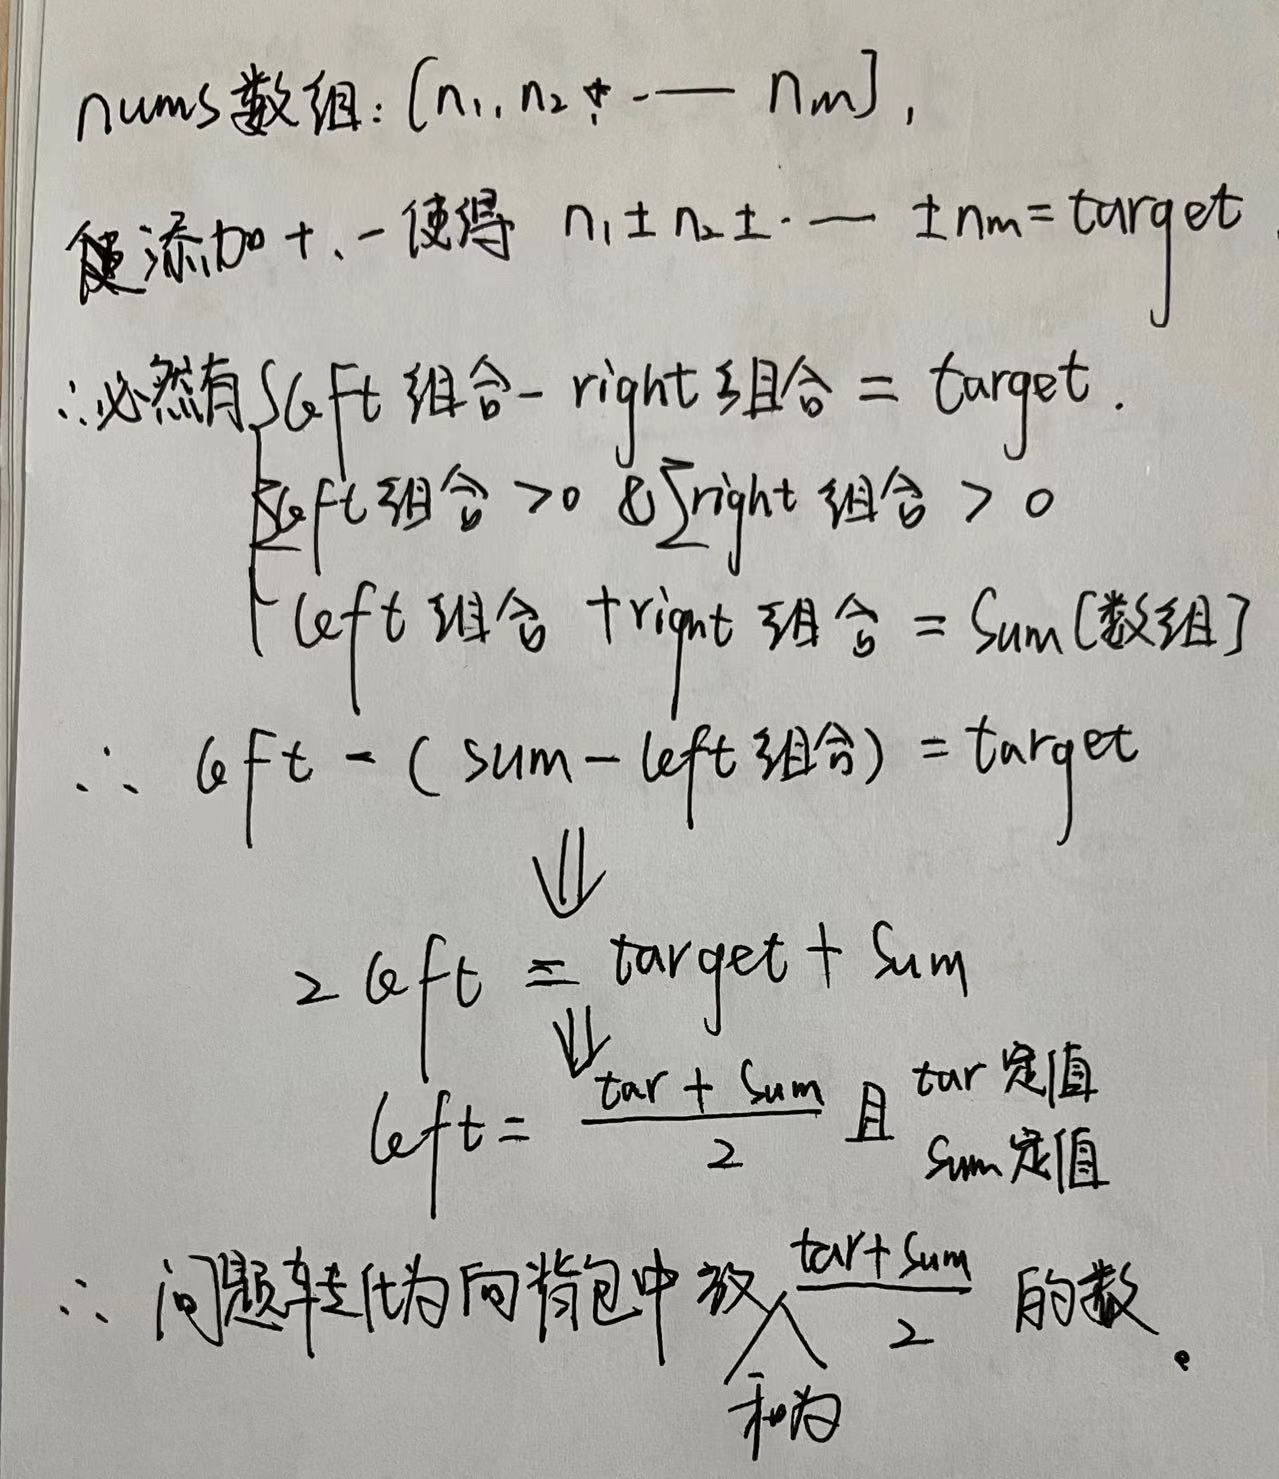 nums数组:[n₁,n₂,·—— nₘ],
添加+、-使得 n₁±n₂±·— ±nₘ=target
∴必然有 left组合-right组合=target.
∑left组合>0 & ∑right组合>0
left组合+right组合=Sum[数组]
∴ left-(sum-left组合)=target
⇓
2left=target+Sum
⇓
left=(tar+Sum)/2 且 tar定值 Sum定值
∴问题转化为向背包中放入和为(tar+Sum)/2的数。